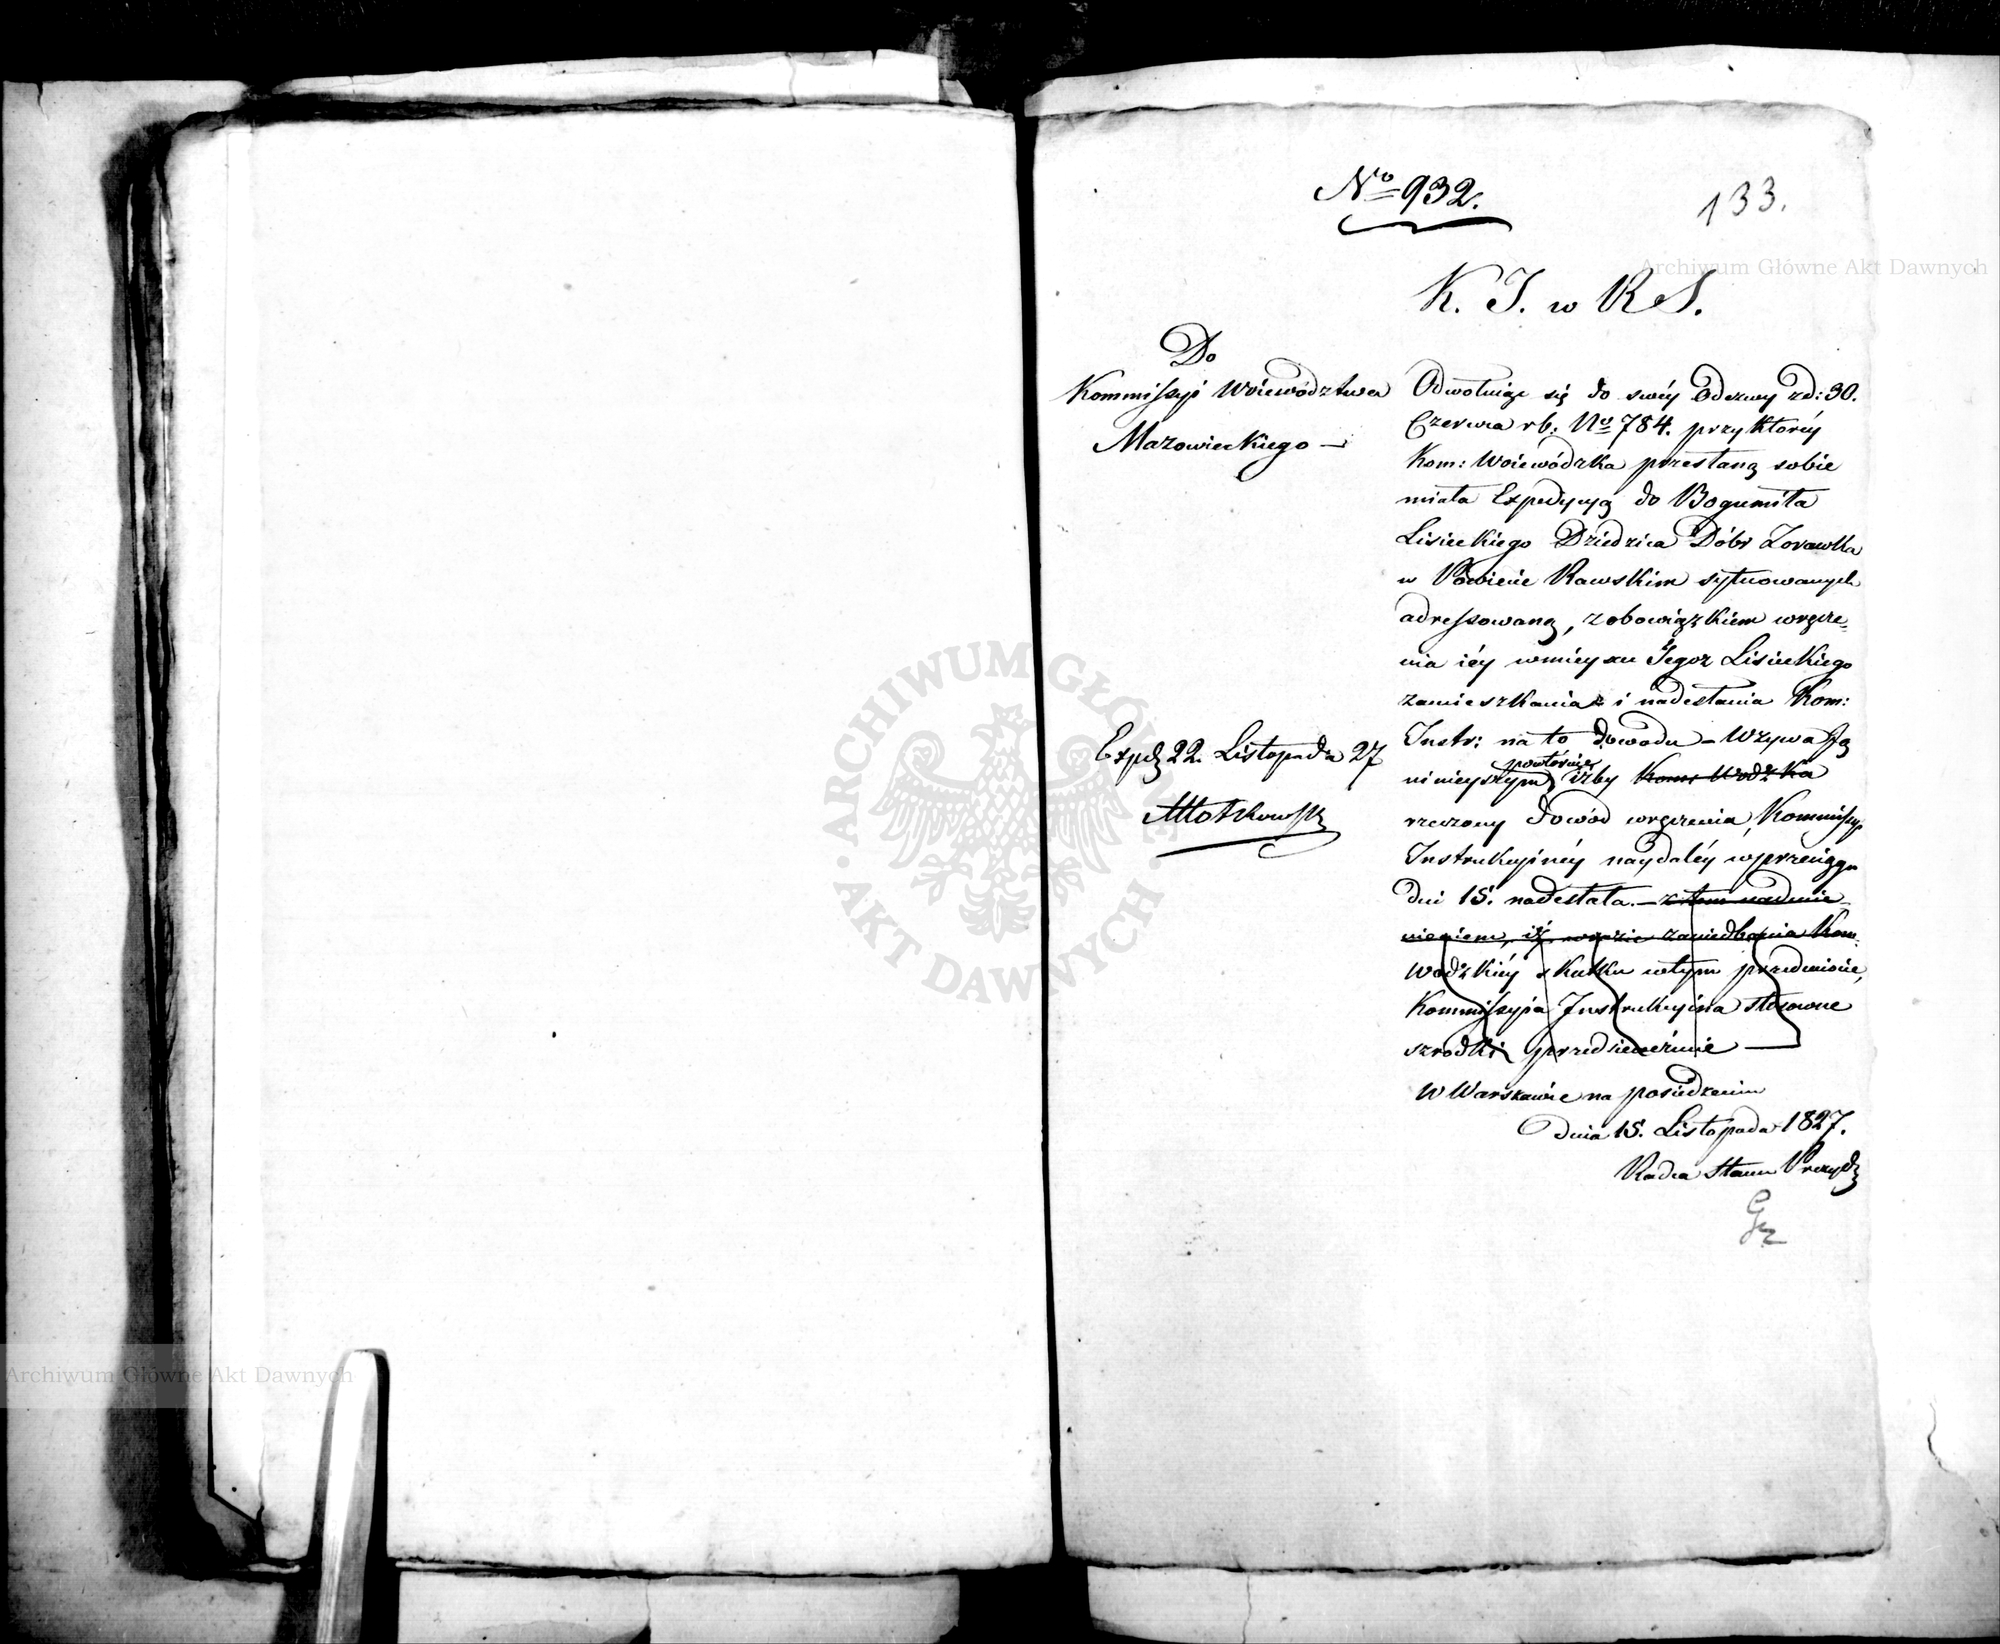 No 932.
133.
Archiwum Główne Akt Dawnych
K. J. w R S.
Do
Kommissyi Woiewództwa
Mazowieckiego —
Odwołuiąc się do swéy Odezwy z d: 30.
Czerwca r b: No 784. przy któréy
Kom: Woiewódzka przesłaną sobie
miała Expedycyą do Bogumiła
Lisieckiego Dziedzica Dóbr Zorawka
w Powiecie Rawskim sytuowanych
adressowaną, z obowiązkiem wręcze=
nia iéy w mieyscu Jegoz Lisieckiego
zamieszkania i nadesłania Kom:
Instr: na to dowodu — Wzywa Ją
ninieyszym powtórnie iżby Kom: Wodzka
rzeczony dowód wręczenia, Kommissyi
Instrukcyinéy naydaléy w przeciągu
dni 15. nadesłała. — z tem nadmie
nieniem, iż w razie zaniedbania Kom:
Wodzkiéy skutku w tym przedmiocie,
Kommissyia Instrukcyina stosowne
szrodki przedsieweźmie —
W Warszawie na posiedzeniu
dnia 15. Listopada 1827.
Radca Stanu Prezyd
Expd 22. Listopada 27
ARCHIWUM GŁÓWNE · AKT DAWNYCH ·
Archiwum Główne Akt Dawnych